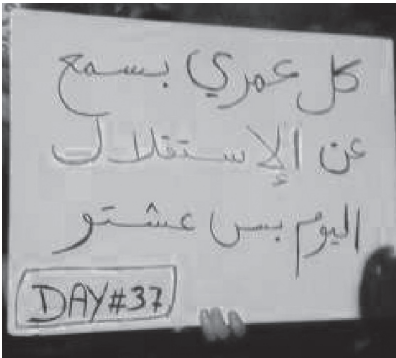 كل عمري بسمع
عن الإستقلال
اليوم بس عشتو
DAY#37